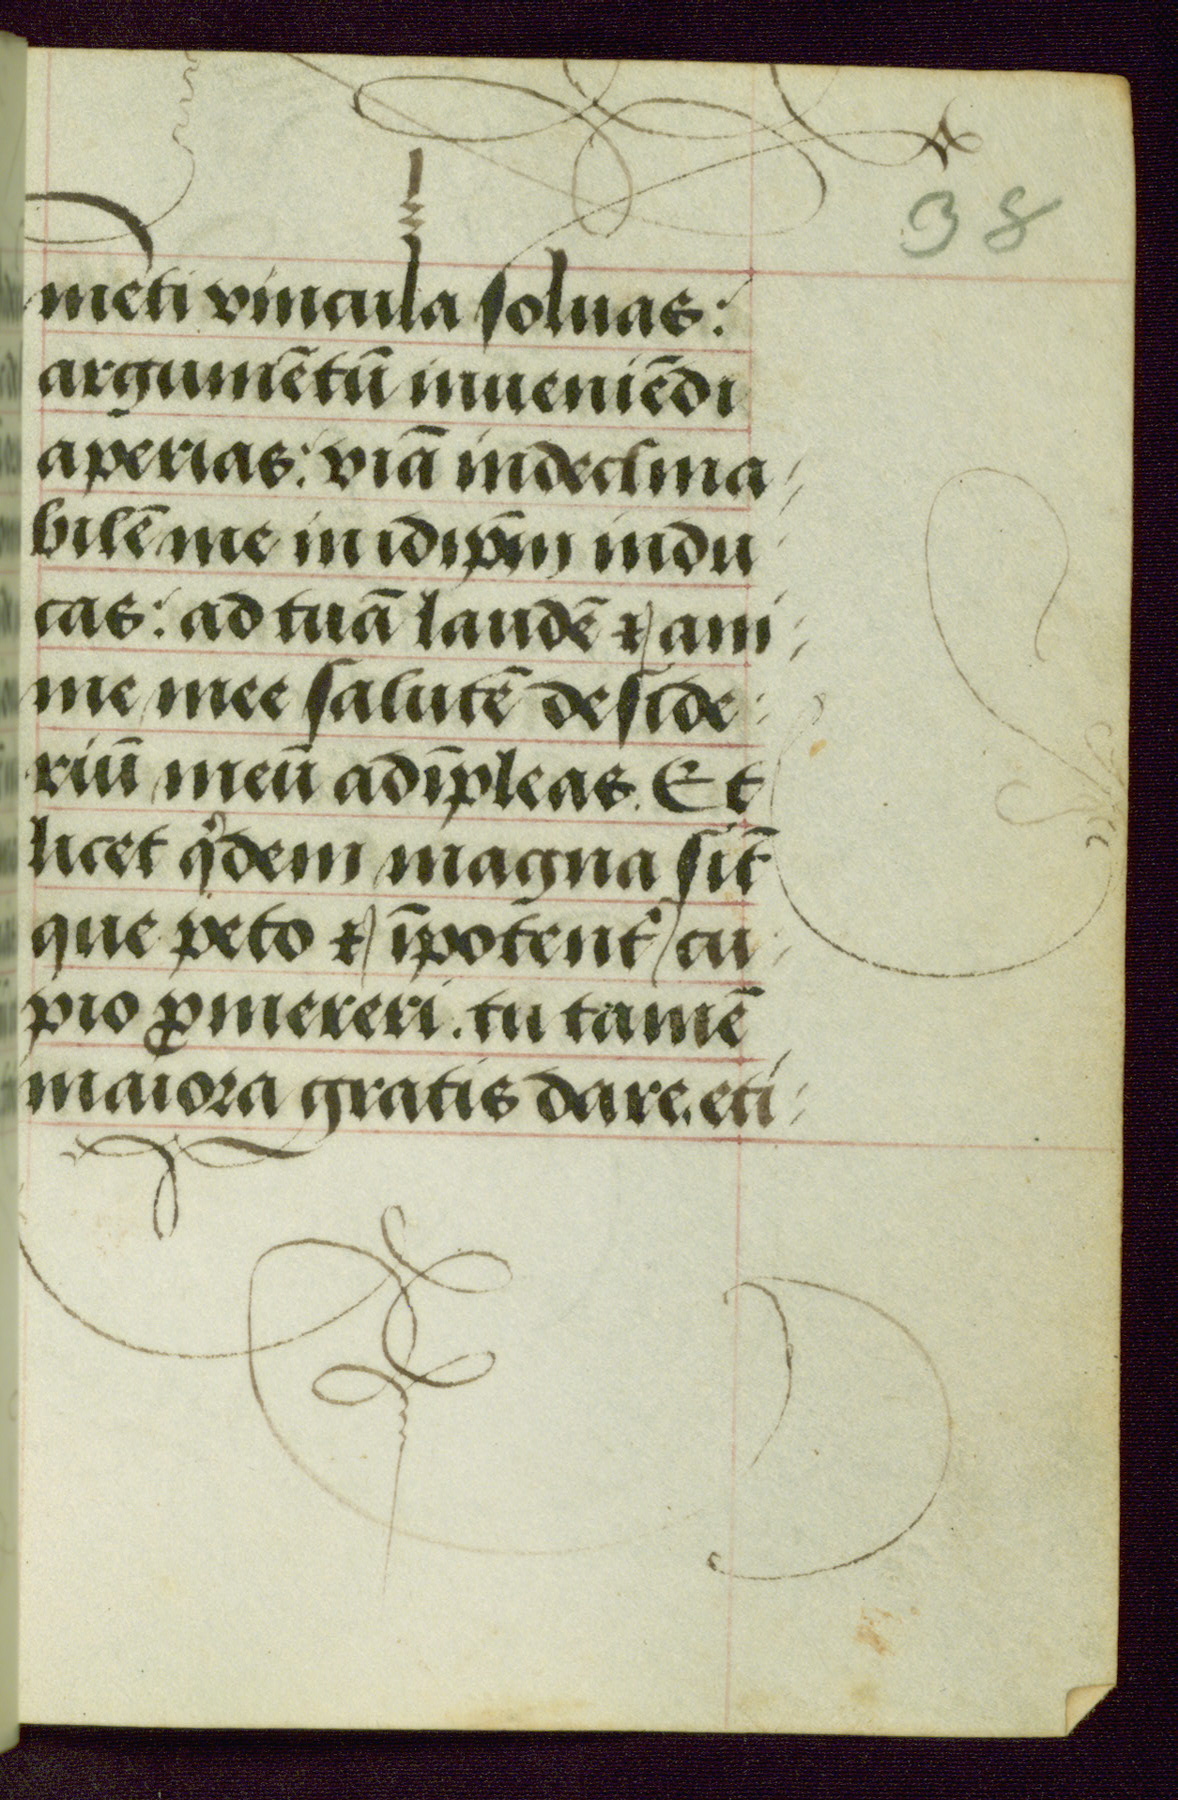 38
mēti vincula soluas:
argumētū inueniēdi
aperias: viā indeclina/
bilē me in idip̄m indu/
cas: ad tuā laudē ⁊ ani/
me mee salutē deside:
riū meū adīpleas. Et
licet qͥdem magna sīt
que peto ⁊ īpotent᷑ cu/
pio ꝓmereri. tu tamē
maiora gratis dare. eti/